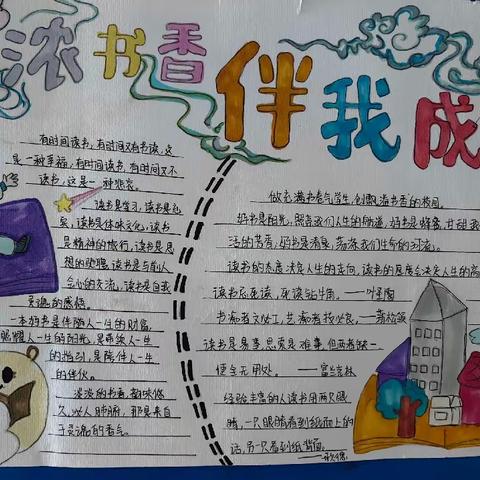 浓书香伴我成
有时间读书,有时间又有书读,这
是一种幸福,有时间读书,有时间又不
读书,这是一种悲哀。
读书是学习,读书是充
实,读书是体味文化,读书
是精神的旅行,读书是思
想的驰骋,读书是与前人
会心的交流,读书是自我
灵魂的感悟。
一本好书是伴随人一生的财富,
照耀人一生的阳光,是带领人一生
的指引,是陪伴人一生
的伙伴。
淡淡的书香,韵味悠
久,沁人肺腑,那是来自
于灵魂的香气。
做充满书香气学生,创飘满书香的校园
好书是阳光,照亮我们人生的隧道,好书是蜂蜜,甘甜我
活的苦涩,好书是清泉,荡涤我们生命的河流。
读书的态度决定人生的走向,读书的
读书忌死读,死读钻牛角。——叶圣陶
书痴者文必工,艺痴者技必良。——蒲松龄
读书是易事,思索是难事,但两者缺一,
便全无用处。——富兰克林
经验丰富的人读书用两只眼
睛,一只眼睛看到纸面上的
话,另一只看到纸背面。
——歌德